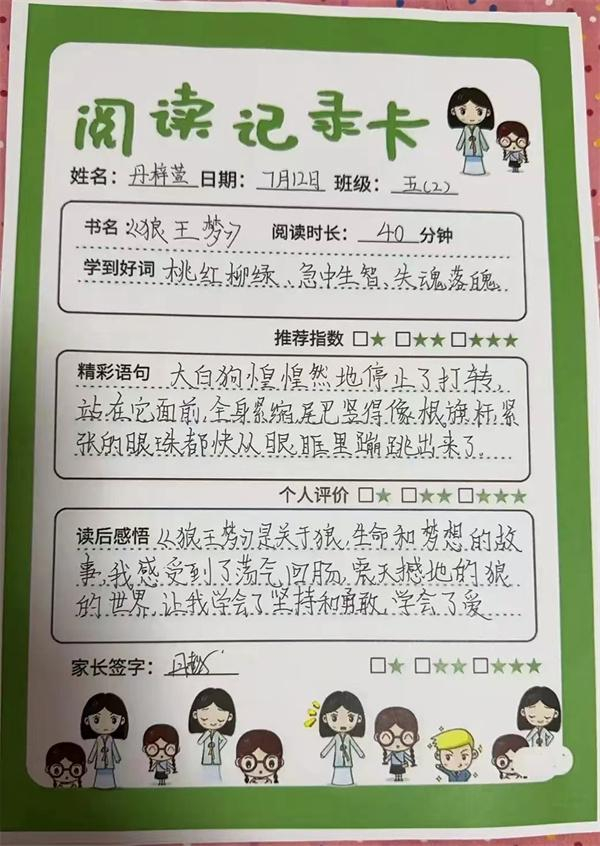 阅读记录卡
姓名：丹梓萱 日期：7月12日 班级：五(2)
书名：《狼王梦》 阅读时长：40分钟
学到好词 桃红柳绿、急中生智、失魂落魄
推荐指数 □★ □★★ □★★★
精彩语句 大白狗惶惶然地停止了打转，
站在它面前，全身紧缩，尾巴竖得像根旗杆，紧
张的眼珠都快从眼眶里蹦跳出来了。
个人评价 □★ □★★ □★★★
读后感悟 《狼王梦》是关于狼，生命和梦想的故
事，我感受到了荡气回肠，震天撼地的狼
的世界，让我学会了坚持和勇敢，学会了爱
家长签字： □★ □★★ □★★★